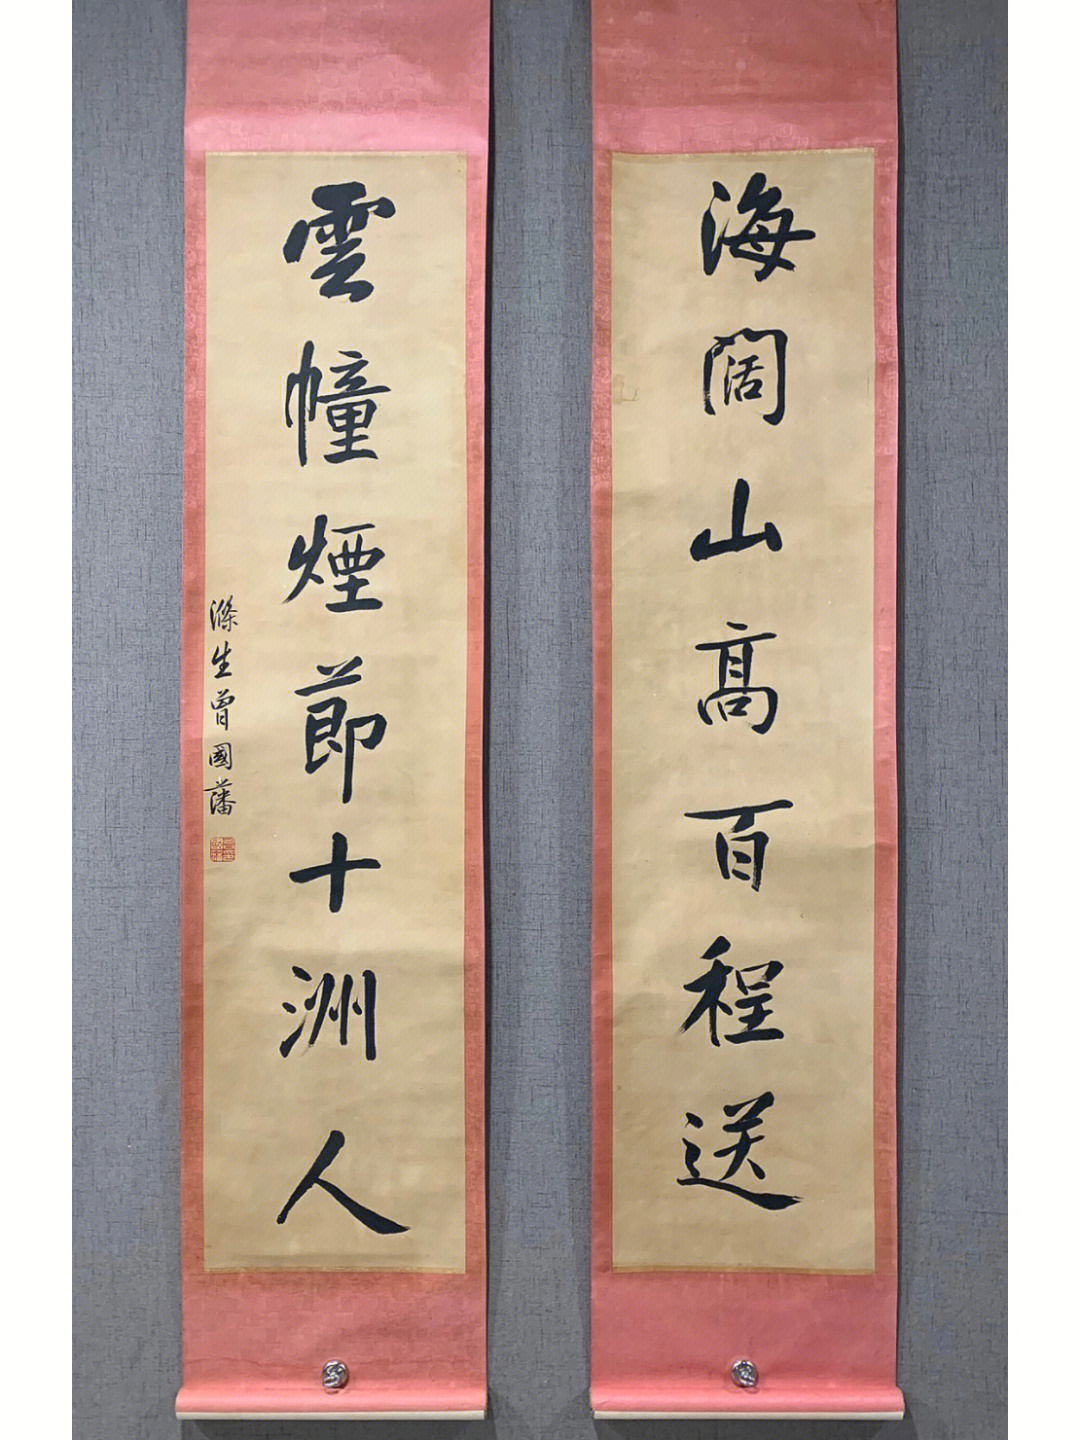 海闊山高百程送
雲幢煙節十洲人
滌生曾國藩